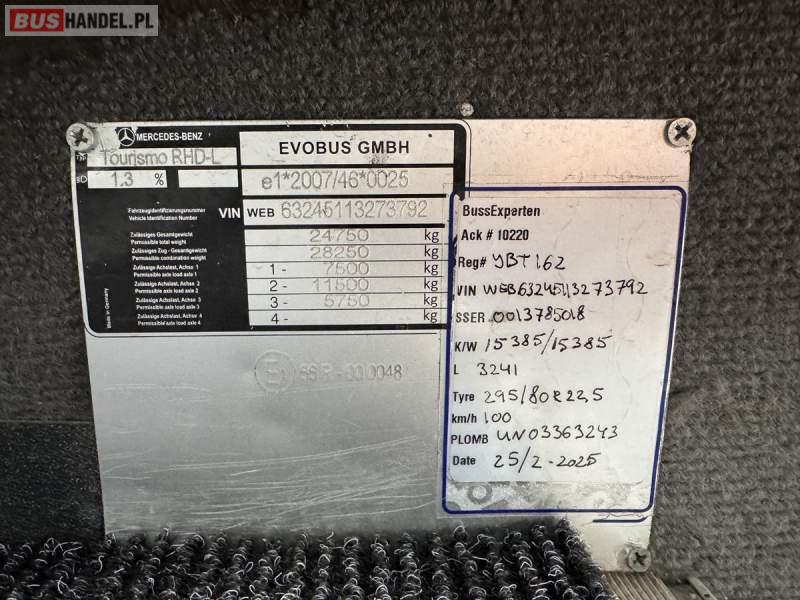 BUSHANDEL.PL
MERCEDES-BENZ
Typ Tourismo RHD-L
1.3 %
EVOBUS GMBH
e1*2007/46*0025
Fahrzeugidentifizierungsnummer
Vehicle Identification Number
VIN WEB 63245113273792
Zulässiges Gesamtgewicht
Permissible total weight
24750 kg
Zulässiges Zug - Gesamtgewicht
Permissible combination weight
28250 kg
Zulässige Achslast, Achse 1
Permissible axle load axle 1
1 - 7500 kg
Zulässige Achslast, Achse 2
Permissible axle load axle 2
2 - 11500 kg
Zulässige Achslast, Achse 3
Permissible axle load axle 3
3 - 5750 kg
Zulässige Achslast, Achse 4
Permissible axle load axle 4
4 - kg
Made in Germany
BussExperten
Ack # 10220
Reg# YBT162
VIN WEB63245113273792
SSER 0013785018
K/W 15385/15385
L 3241
Tyre 295/80R22,5
km/h 100
PLOMB UN03363243
Date 25/2-2025